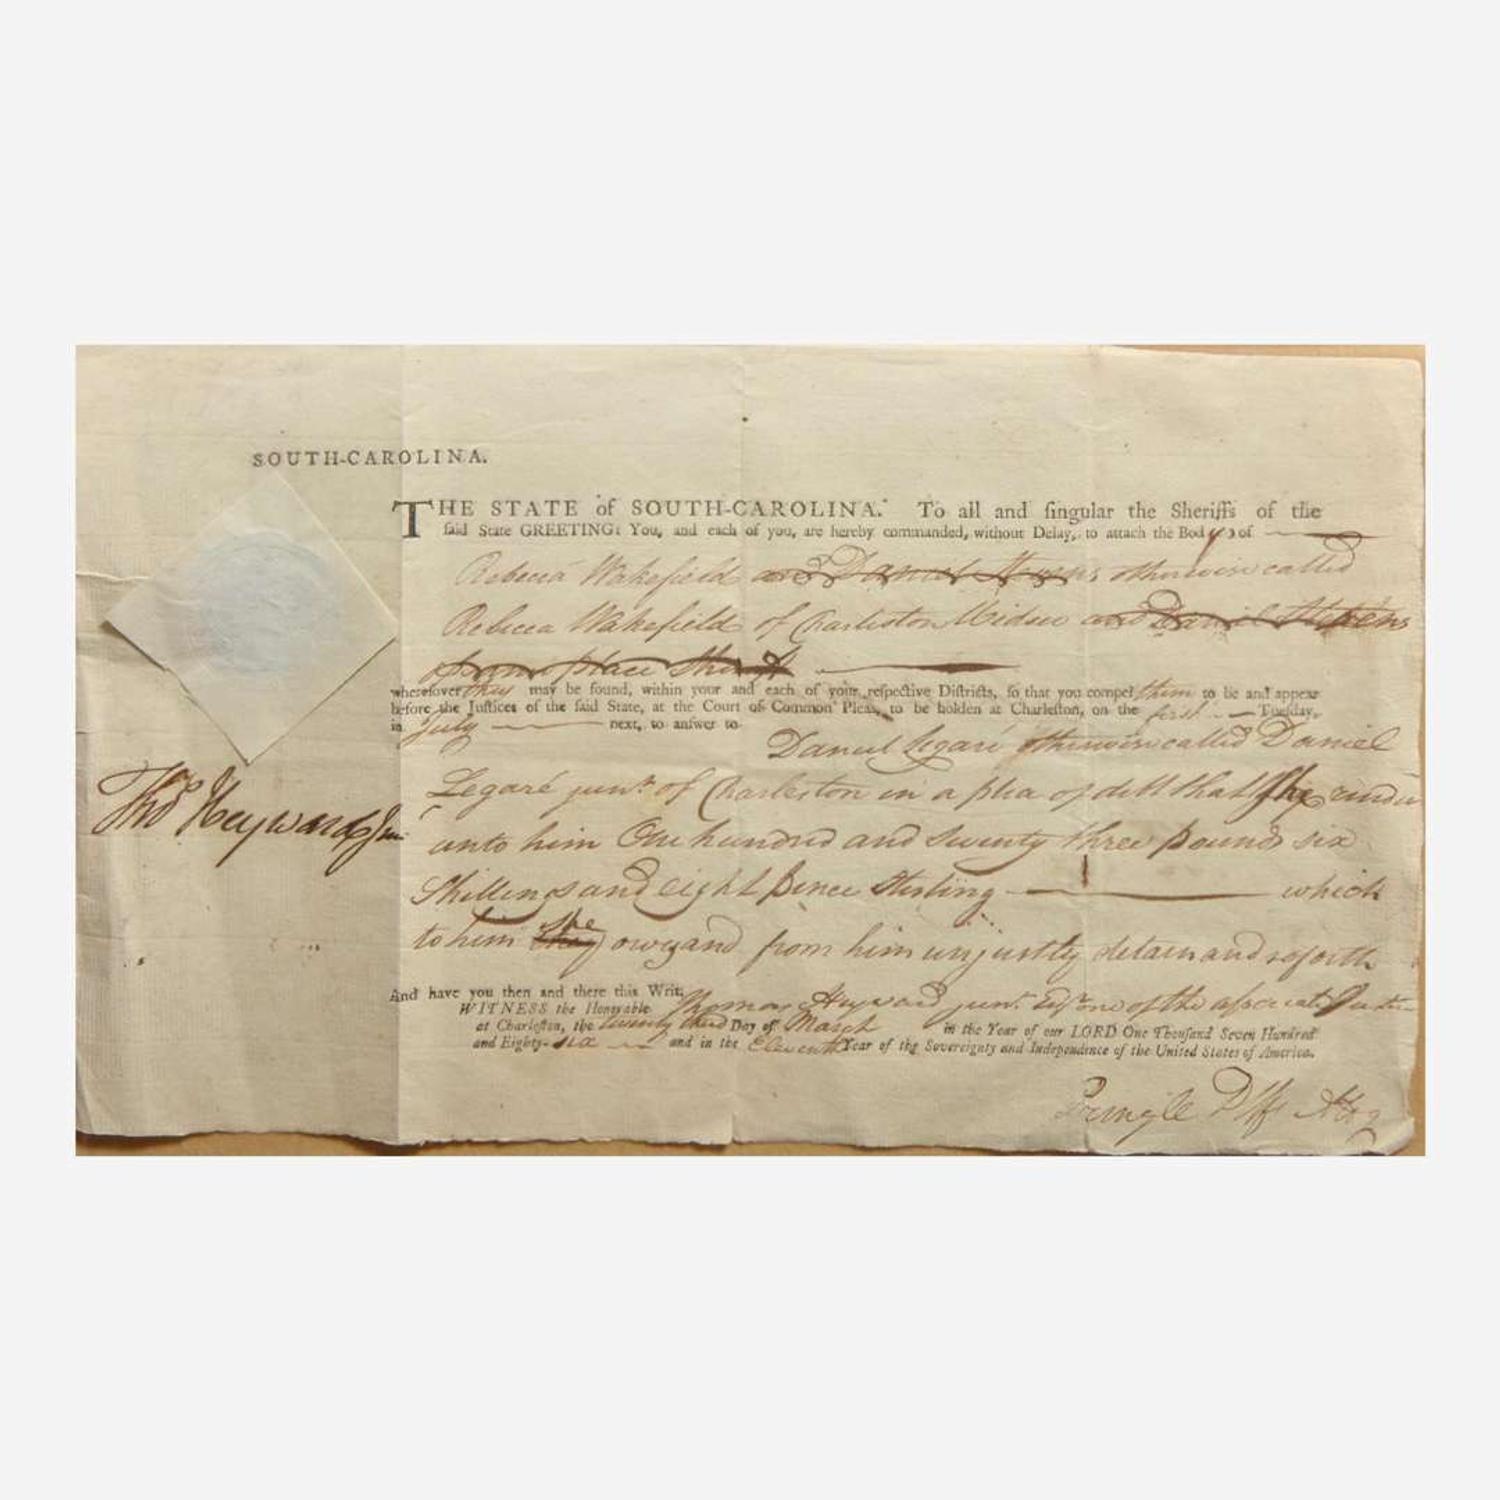 SOUTH-CAROLINA.
THE STATE of SOUTH-CAROLINA. To all and ſingular the Sheriffs of the
ſaid State GREETING: You, and each of you, are hereby commanded, without Delay, to attach the Body of
Rebecca Wakefield and Daniel Stevens otherwise called
Rebecca Wakefield of Charleston Widow and Daniel Stevens
of same place
whereſoever they may be found, within your and each of your reſpective Diſtricts, ſo that you compel them to be and appear
before the Juſtices of the ſaid State, at the Court of Common Pleas, to be holden at Charleſton, on the first Tueſday,
in July next, to anſwer to
Daniel Legaré otherwise called Daniel
Legaré junr. of Charleston in a plea of debt that she render
unto him One hundred and twenty three pounds six
Shillings and eight pence Sterling which
to him they she owes and from him unjustly detain and so forth
And have you then and there this Writ;
WITNESS the Honorable Thomas Heyward junr. Esqr. one of the associate Justices
at Charleſton, the twenty third Day of March in the Year of our LORD One Thouſand Seven Hundred
and Eighty-six and in the Eleventh Year of the Sovereignty and Independence of the United States of America.
Thos Heyward Junr
Pringle Plffs Atty